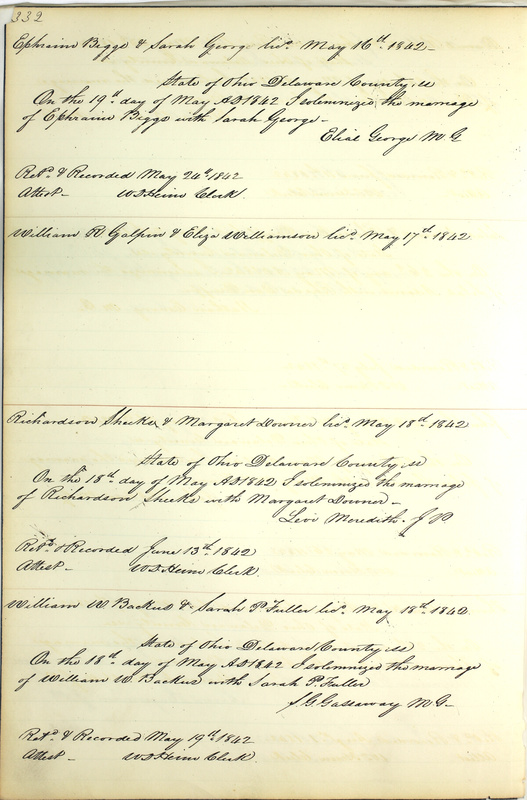 332
Ephraim Biggs & Sarah George licd. May 16th. 1842
State of Ohio Delaware County, ss
On the 19th. day of May AD 1842 I solemnized the marriage
of Ephraim Biggs with Sarah George
Elial George M.G
Retd. & Recorded May 24th, 1842
Attest W.D. Heim Clerk.
William R Galpin & Eliza Williamson licd. May 17th. 1842
Richardson Sheeks & Margaret Downer licd. May 18th. 1842
State of Ohio Delaware County ss
On the 18th. day of May AD 1842 I solemnized the marriage
of Richardson Sheeks with Margaret Downer
Levi Meredith J P
Retd. & Recorded June 13th. 1842
Attest W.D. Heim Clerk.
William W. Backus & Sarah P. Fuller licd. May 18th. 1842
State of Ohio Delaware County ss
On the 18th. day of May AD 1842 I solemnized the marriage
of William W. Backus with Sarah P. Fuller
Gassaway M.G
Retd. & Recorded May 19th. 1842
Attest W.D. Heim Clerk.